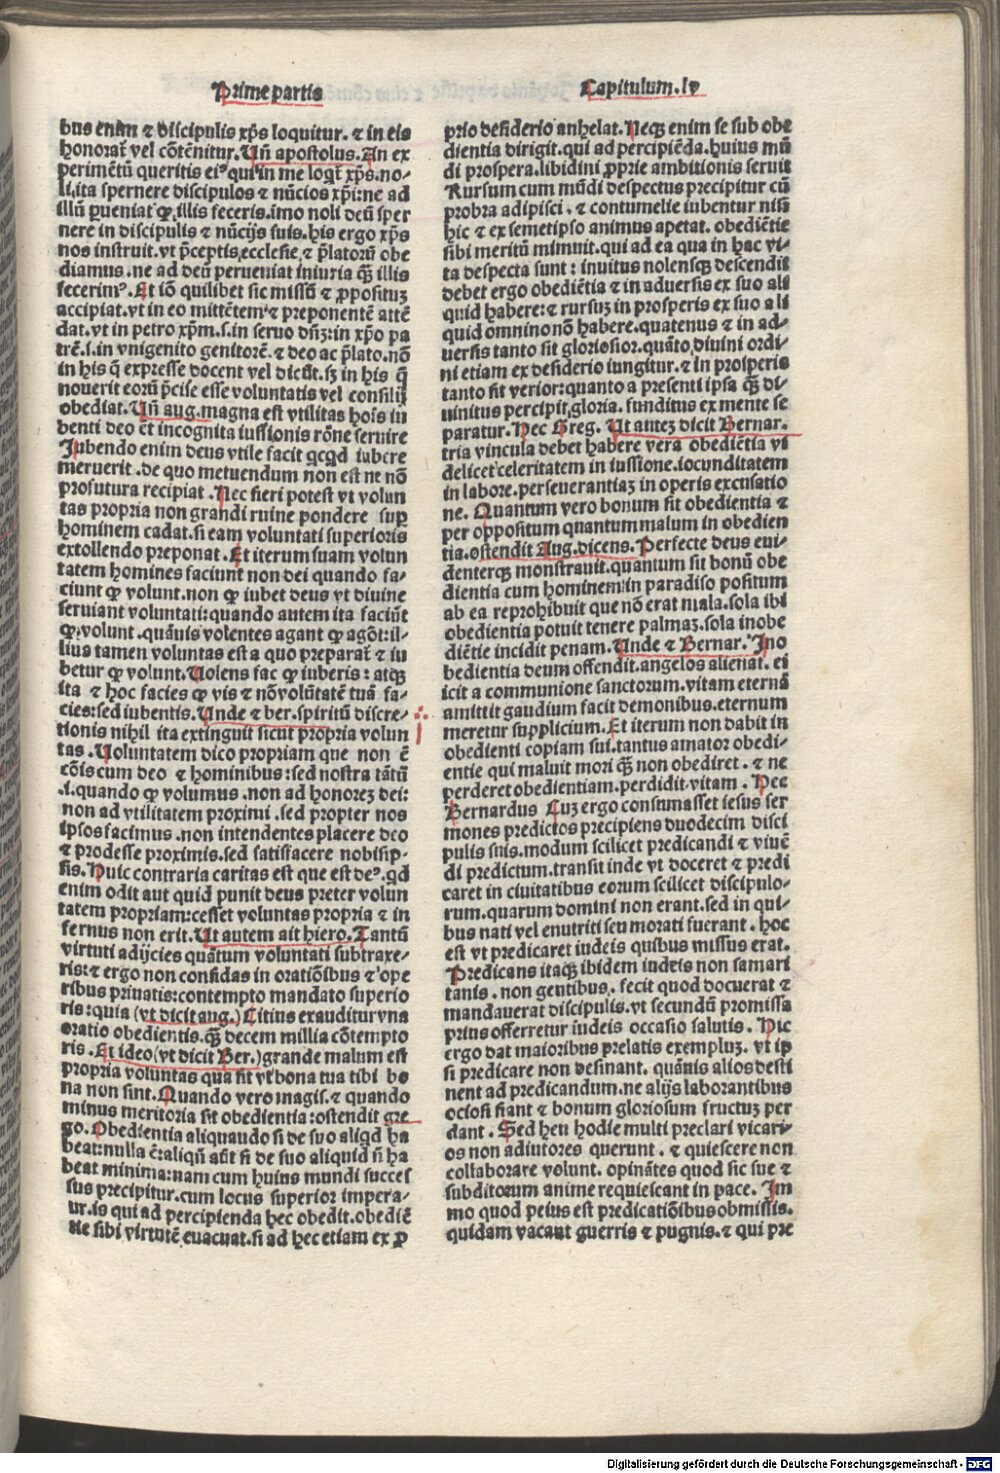 Prime partis
Capitulum. lv
bus enim ⁊ discipulis xp̄s loquitur. ⁊ in eis
honorat̄ vel cōtēnitur. Uñ apostolus. An ex
perimētū queritis eiꝰ qui in me loqr̄ xp̄s. no⸗
li, ita spernere discipulos ⁊ nūcios xp̄i: ne ad
illū ꝑueniat ꝙ illis feceris. imo noli deū sper
nere in discipulis ⁊ nūcijs suis. his ergo xp̄s
nos instruit. vt p̄ceptis ecclesie, ⁊ p̄latorū obe
diamus. ne ad deū perueniat iniuria q̄ꝫ illis
fecerimꝰ. Et iō quilibet sic missū ⁊ ꝓposituꝫ
accipiat. vt in eo mittētem ⁊ preponentē attē
dat. vt in petro xp̄m. s. in seruo dn̄ꝫ: in xp̄o pa
trē. i. in vnigenito genitorē. ⁊ deo ac p̄lato. nō
in his q̄ expresse docent vel dicūt. sꝫ in his q̄
nouerit eorū p̄cise esse voluntatis vel consilij
obediat. Uñ aug. magna est vtilitas hoīs iu
benti deo et̄ incognita iussionis rōne seruire
Jubendo enim deus vtile facit qcqd iubere
meruerit. de quo metuendum non est ne nō
profutura recipiat. Nec fieri potest vt volun
tas propria non grandi ruine pondere sup̄
hominem cadat. si eam voluntati superioris
extollendo preponat. Et iterum suam volun
tatem homines faciunt non dei quando fa⸗
ciunt ꝙ volunt. non ꝙ iubet deus vt diuine
seruiant voluntati: quando autem ita faciūt
ꝙ volunt. quāuis volentes agant ꝙ agōt: il⸗
lius tamen voluntas est a quo preparat̄ ⁊ iu
betur ꝙ volunt. Uolens fac ꝙ iuberis: atqꝫ
ita ⁊ hoc facies ꝙ vis ⁊ nō volūtatē tuā fa⸗
cies: sed iubentis. Unde ⁊ ber. spiritū discre⸗
tionis nihil ita extinguit sicut propria volun
tas. Uoluntatem dico propriam que non ē
cōis cum deo ⁊ hominibus: sed nostra tātū
.i. quando ꝙ volumus. non ad honoreꝫ dei:
non ad vtilitatem proximi. sed propter nos
ipsos facimus. non intendentes placere deo
⁊ prodesse proximis. sed satisfacere nobisip⸗
sis. Huic contraria caritas est que est deꝰ. qd
enim odit aut quid punit deus preter volun
tatem propriam: cesset voluntas propria ⁊ in
fernus non erit. Ut autem ait hiero. Tantū
virtuti adijcies quātum voluntati subtraxe⸗
ris: ⁊ ergo non confidas in oratiōibus ⁊ ope
ribus priuatis: contempto mandato superio
ris: quia (vt dicit aug.) Citius exauditur vna
oratio obedientis. q̄ꝫ decem millia cōtempto
ris. Et ideo (vt dicit Ber.) grande malum est
propria voluntas qua fit vt bona tua tibi bo
na non sint. Quando vero magis. ⁊ quando
minus meritoria sit obedientia: ostendit gre
go. Obedientia aliquando si de suo aliqd ha
beat: nulla ē: aliqn̄ aūt si de suo aliquid n̄ ha
beat minima: nam cum huius mundi succes
sus precipitur. cum locus superior impera⸗
ur. is qui ad percipienda hec obedit. obediē
tie sibi virtutē euacuat. si ad hec etiam ex ꝓ
prio desiderio anhelat. Neqꝫ enim se sub obe
dientia dirigit. qui ad percipiēda. huius mū
di prospera. libidini ꝓprie ambitionis seruit
Rursum cum mūdi despectus precipitur cū
probra adipisci. ⁊ contumelie iubentur nisi
hic ⁊ ex semetipso animus apetat. obediētie
sibi meritū minuit. qui ad ea qua in hac vi⸗
ta despecta sunt: inuitus nolensqꝫ descendit
debet ergo obediētia ⁊ in aduersis ex suo ali
quid habere: ⁊ rursuꝫ in prosperis ex suo ali
quid omnino nō habere. quatenus ⁊ in ad⸗
uersis tanto sit gloriosior. quāto diuini ordi⸗
ni etiam ex desiderio iungitur. ⁊ in prosperis
tanto fit verior: quanto a presenti ipsa q̄ꝫ di⸗
uinitus percipit gloria. funditus ex mente se
paratur. Hec Greg. Ut auteꝫ dicit Bernar.
tria vincula debet habere vera obediētia vi
delicet celeritatem in iussione. iocunditatem
in labore. perseuerantiaꝫ in operis excusatio
ne. Quantum vero bonum sit obedientia ⁊
per oppositum quantum malum in obedien
tia. ostendit Aug. dicens. Perfecte deus eui⸗
denterqꝫ monstrauit. quantum sit bonū obe
dientia cum hominem: in paradiso positum
ab ea re prohibuit que nō erat mala. sola ibi
obedientia potuit tenere palmaꝫ. sola inobe
diētie incidit penam. Unde ⁊ Bernar. Jno
bedientia deum offendit. angelos alienat. ei
icit a communione sanctorum. vitam eternā
amittit gaudium facit demonibus. eternum
meretur supplicium. Et iterum non dabit in
obedienti copiam sui. tantus amator obedi⸗
entie qui maluit mori q̄ꝫ non obediret. ⁊ ne
perderet obedientiam. perdidit vitam. Hec
Bernardus Cuꝫ ergo consumasset iesus ser
mones predictos precipiens duodecim disci
pulis suis. modum scilicet predicandi ⁊ viuē
di predictum. transit inde vt doceret ⁊ predi
caret in ciuitatibus eorum scilicet discipulo⸗
rum. quarum domini non erant. sed in qui⸗
bus nati vel enutriti seu morati fuerant. hoc
est vt predicaret iudeis quibus missus erat.
Predicans itaqꝫ ibidem iudeis non samari
tanis. non gentibus. fecit quod docuerat ⁊
mandauerat discipulis. vt secundū promissa
prius offerretur iudeis occasio salutis. Hic
ergo dat maioribus prelatis exempluꝫ. vt ip
si predicare non desinant. quāuis alios desti
nent ad predicandum. ne alijs laborantibus
ociosi fiant ⁊ bonum gloriosum fructuꝫ per
dant. Sed heu hodie multi preclari vicari⸗
os non adiutores querunt. ⁊ quiescere non
collaborare volunt. opināntes quod sic sue ⁊
subditorum anime requiescant in pace. Jm
mo quod peius est predicatiōibus obmissis.
quidam vacant guerris ⁊ pugnis. ⁊ qui pre
Digitalisierung gefördert durch die Deutsche Forschungsgemeinschaft - DFG